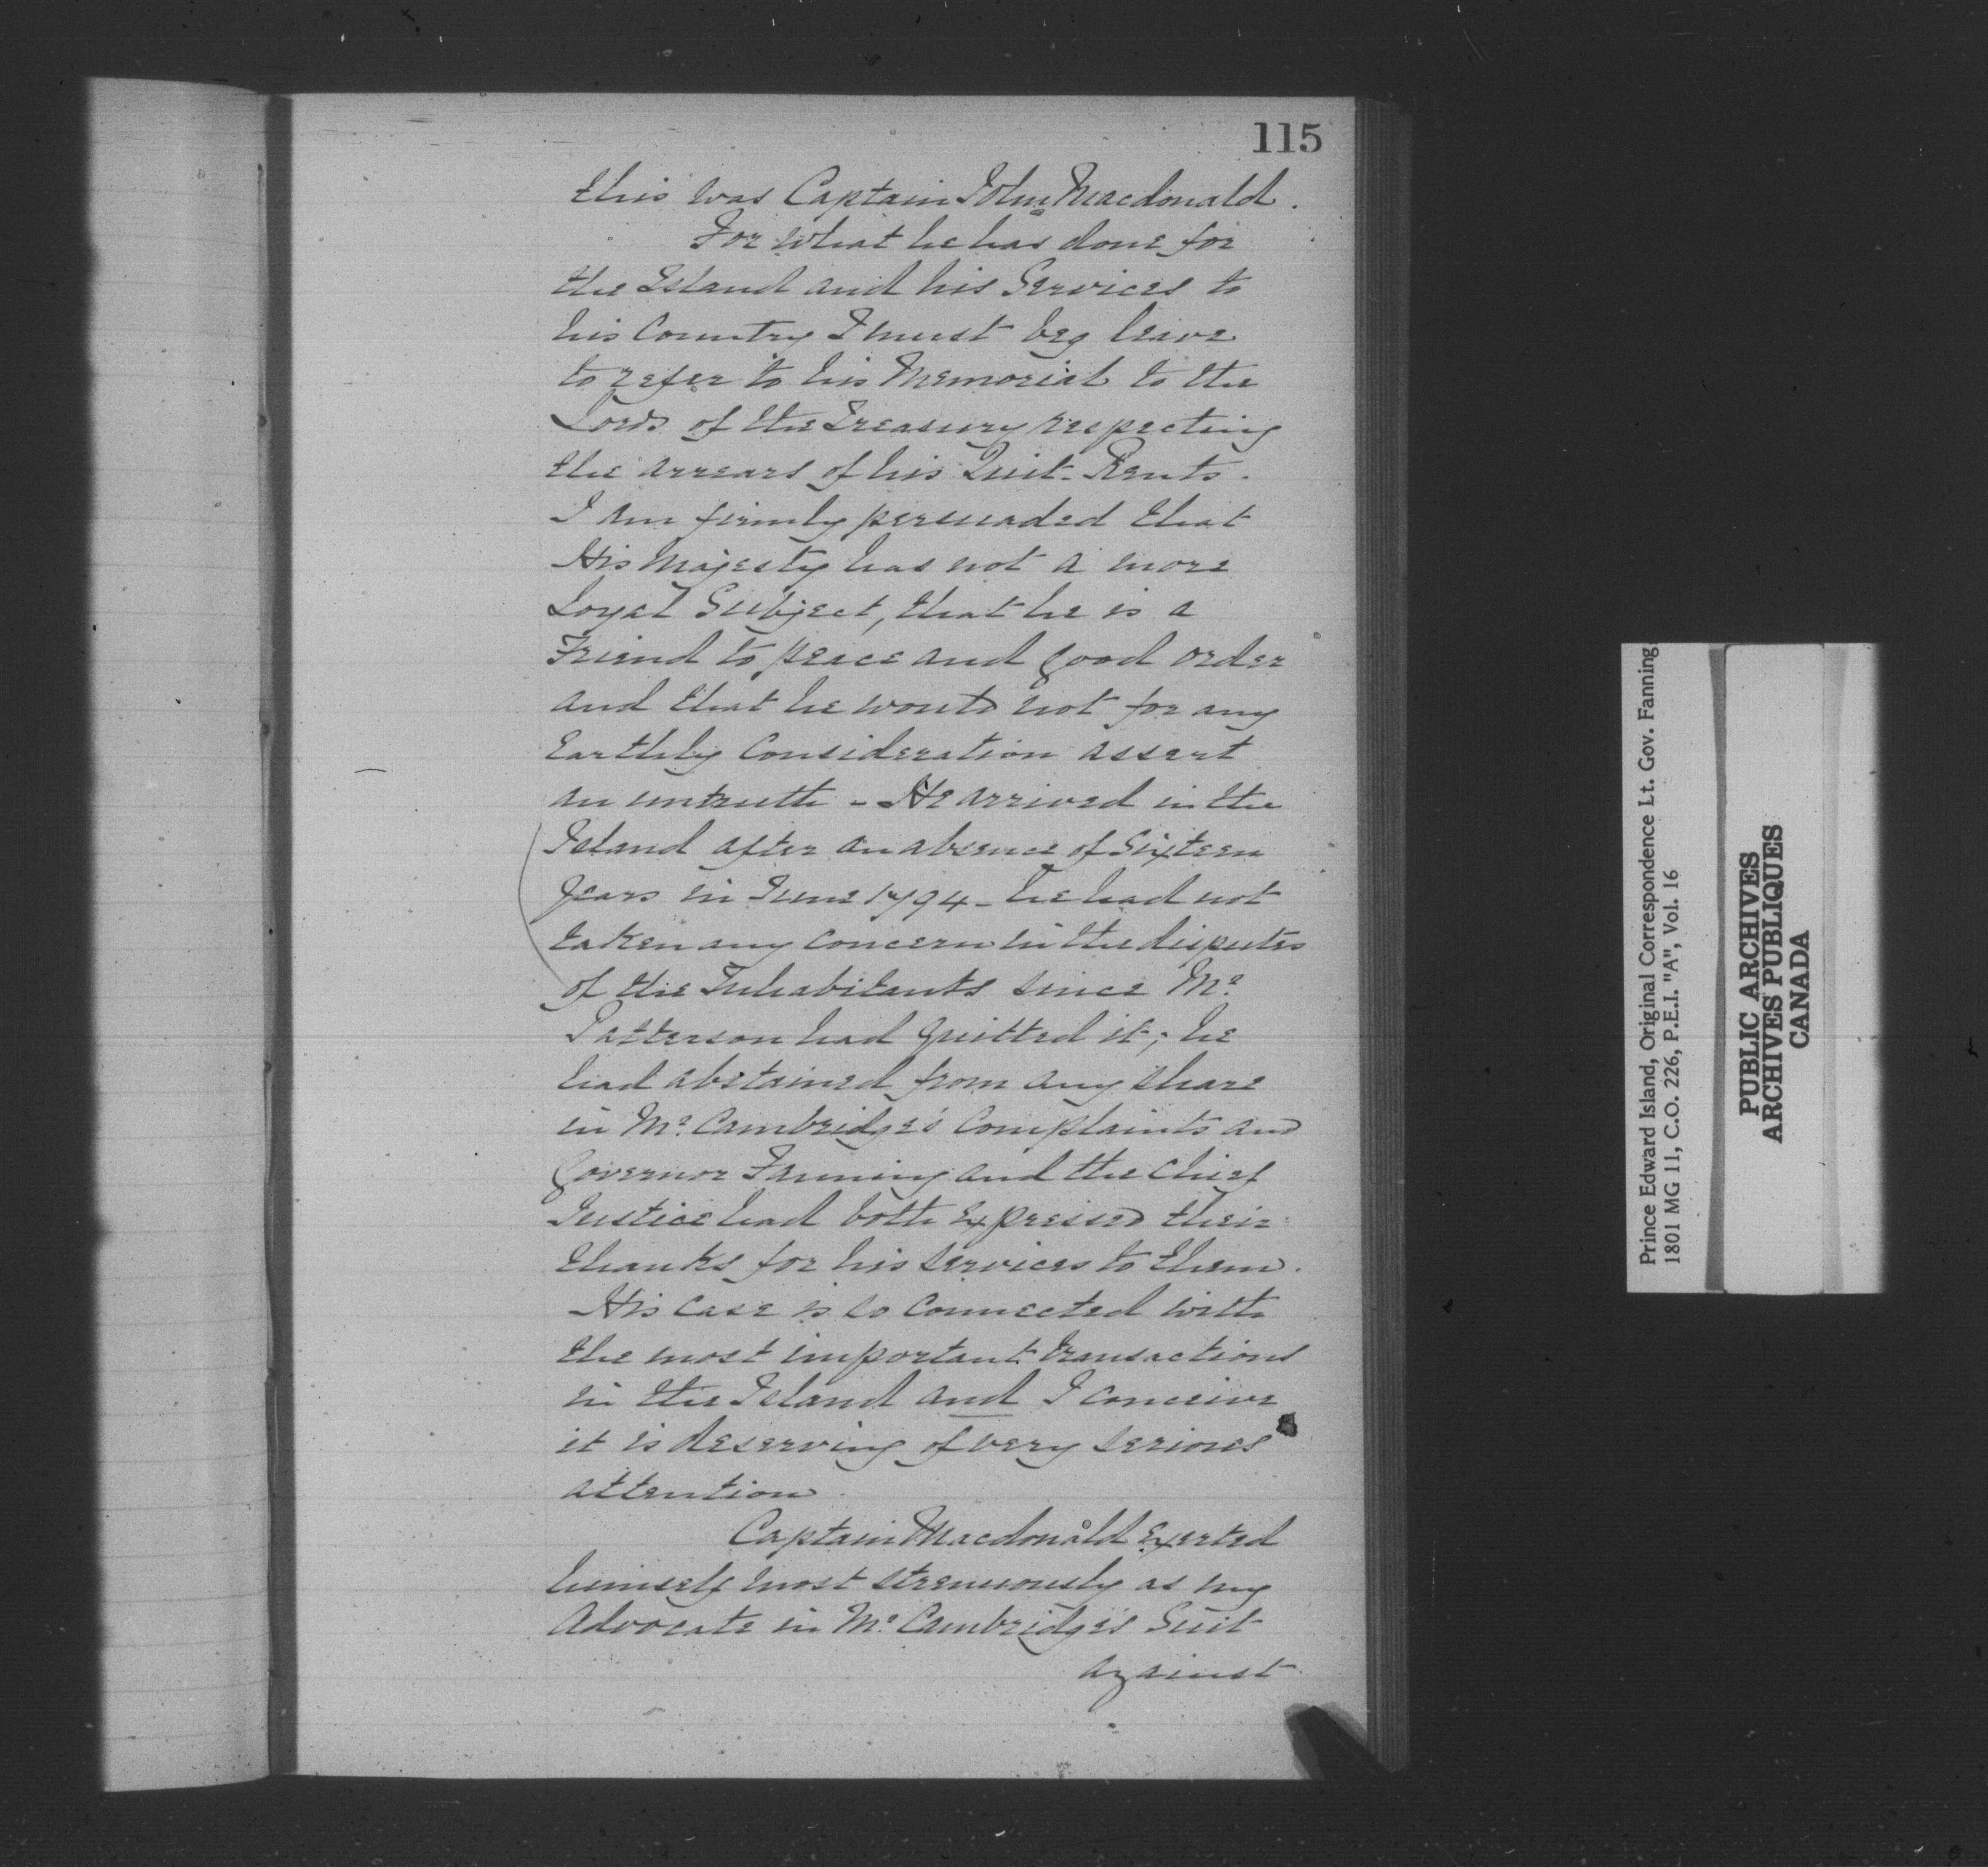 115
this was Captain John Macdonald.
For what he has done for
the Island and his Services to
his Country I must beg leave
to refer to his Memorial to the
Lords of the Treasury respecting
the arrears of his Quit-Rents.
I am firmly persuaded that
His Majesty has not a more
Loyal Subject, that he is a
Friend to peace and good order
and that he would not for any
Earthly Consideration assert
an untruth - He arrived in the
Island after an absence of Sixteen
years in June 1794 - he had not
taken any concern in the disputes
of the Inhabitants since Mr.
Patterson had quitted it; he
had abstained from any share
in Mr. Cambridge's Complaints and
Governor Fanning and the Chief
Justice had both Expressed their
thanks for his services to them.
His case is so connected with
the most important transactions
in the Island and I conceive
it is deserving of very serious
attention.
Captain Macdonald Exerted
himself most strenuously as my
Advocate in Mr. Cambridge's Suit
against
Prince Edward Island, Original Correspondence Lt. Gov. Fanning
1801 MG 11, C.O. 226, P.E.I. "A", Vol. 16
PUBLIC ARCHIVES
ARCHIVES PUBLIQUES
CANADA